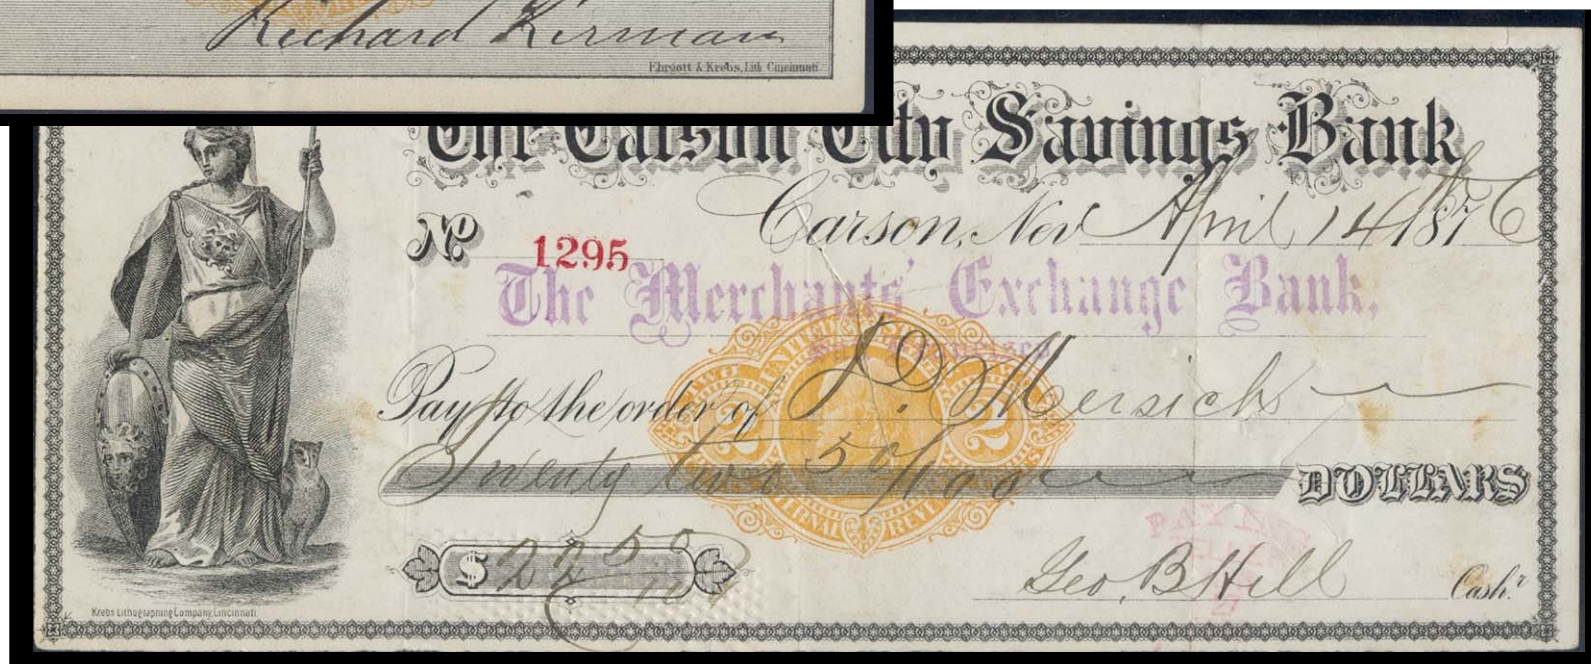 Richard Kirman
Ehrgott & Krebs, Lith. Cincinnati.
The Carson City Savings Bank
Carson, Nev April 14th 1876
No 1295
The Merchants' Exchange Bank,
San Francisco
UNITED
Pay to the order of J. D. Mersich
2 2
Twenty two 50/100 DOLLARS
INTERNAL REVENUE
PAYING
TELLER
$ 22 50/100
Geo. B Hill Cashr.
Krebs Lithographing Company, Cincinnati.